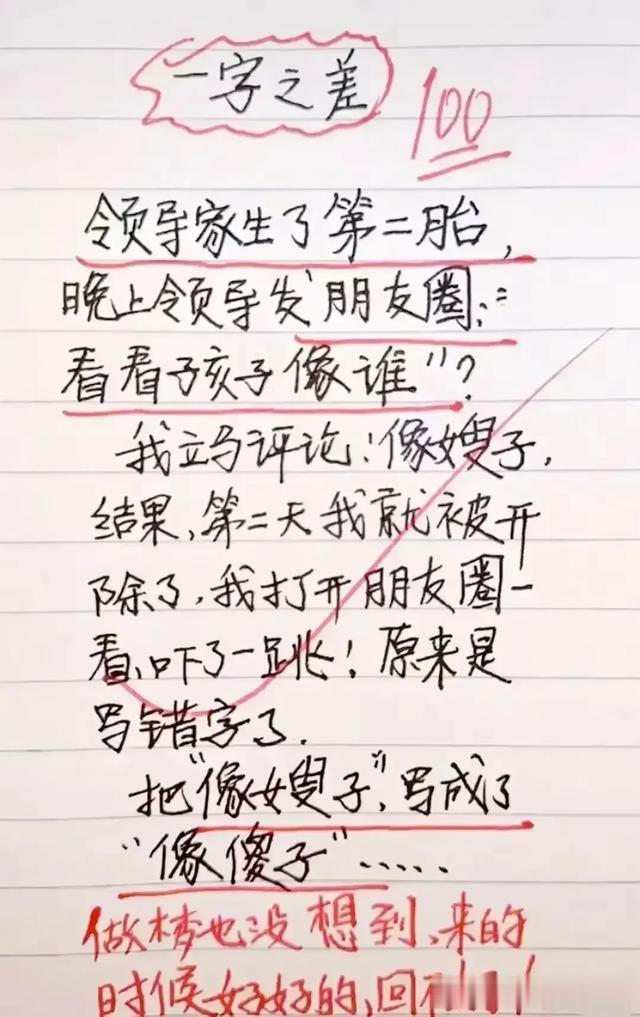 一字之差
100
领导家生了第二胎,
晚上领导发"朋友圈:
看看孩子像谁"?
我立马评论:像嫂子,
结果,第二天我就被开
除了,我打开朋友圈一
看,吓了一跳!原来是
写错字了.
把"像嫂子",写成了
"像傻子".....
做梦也没想到,来的
时候好好的,回